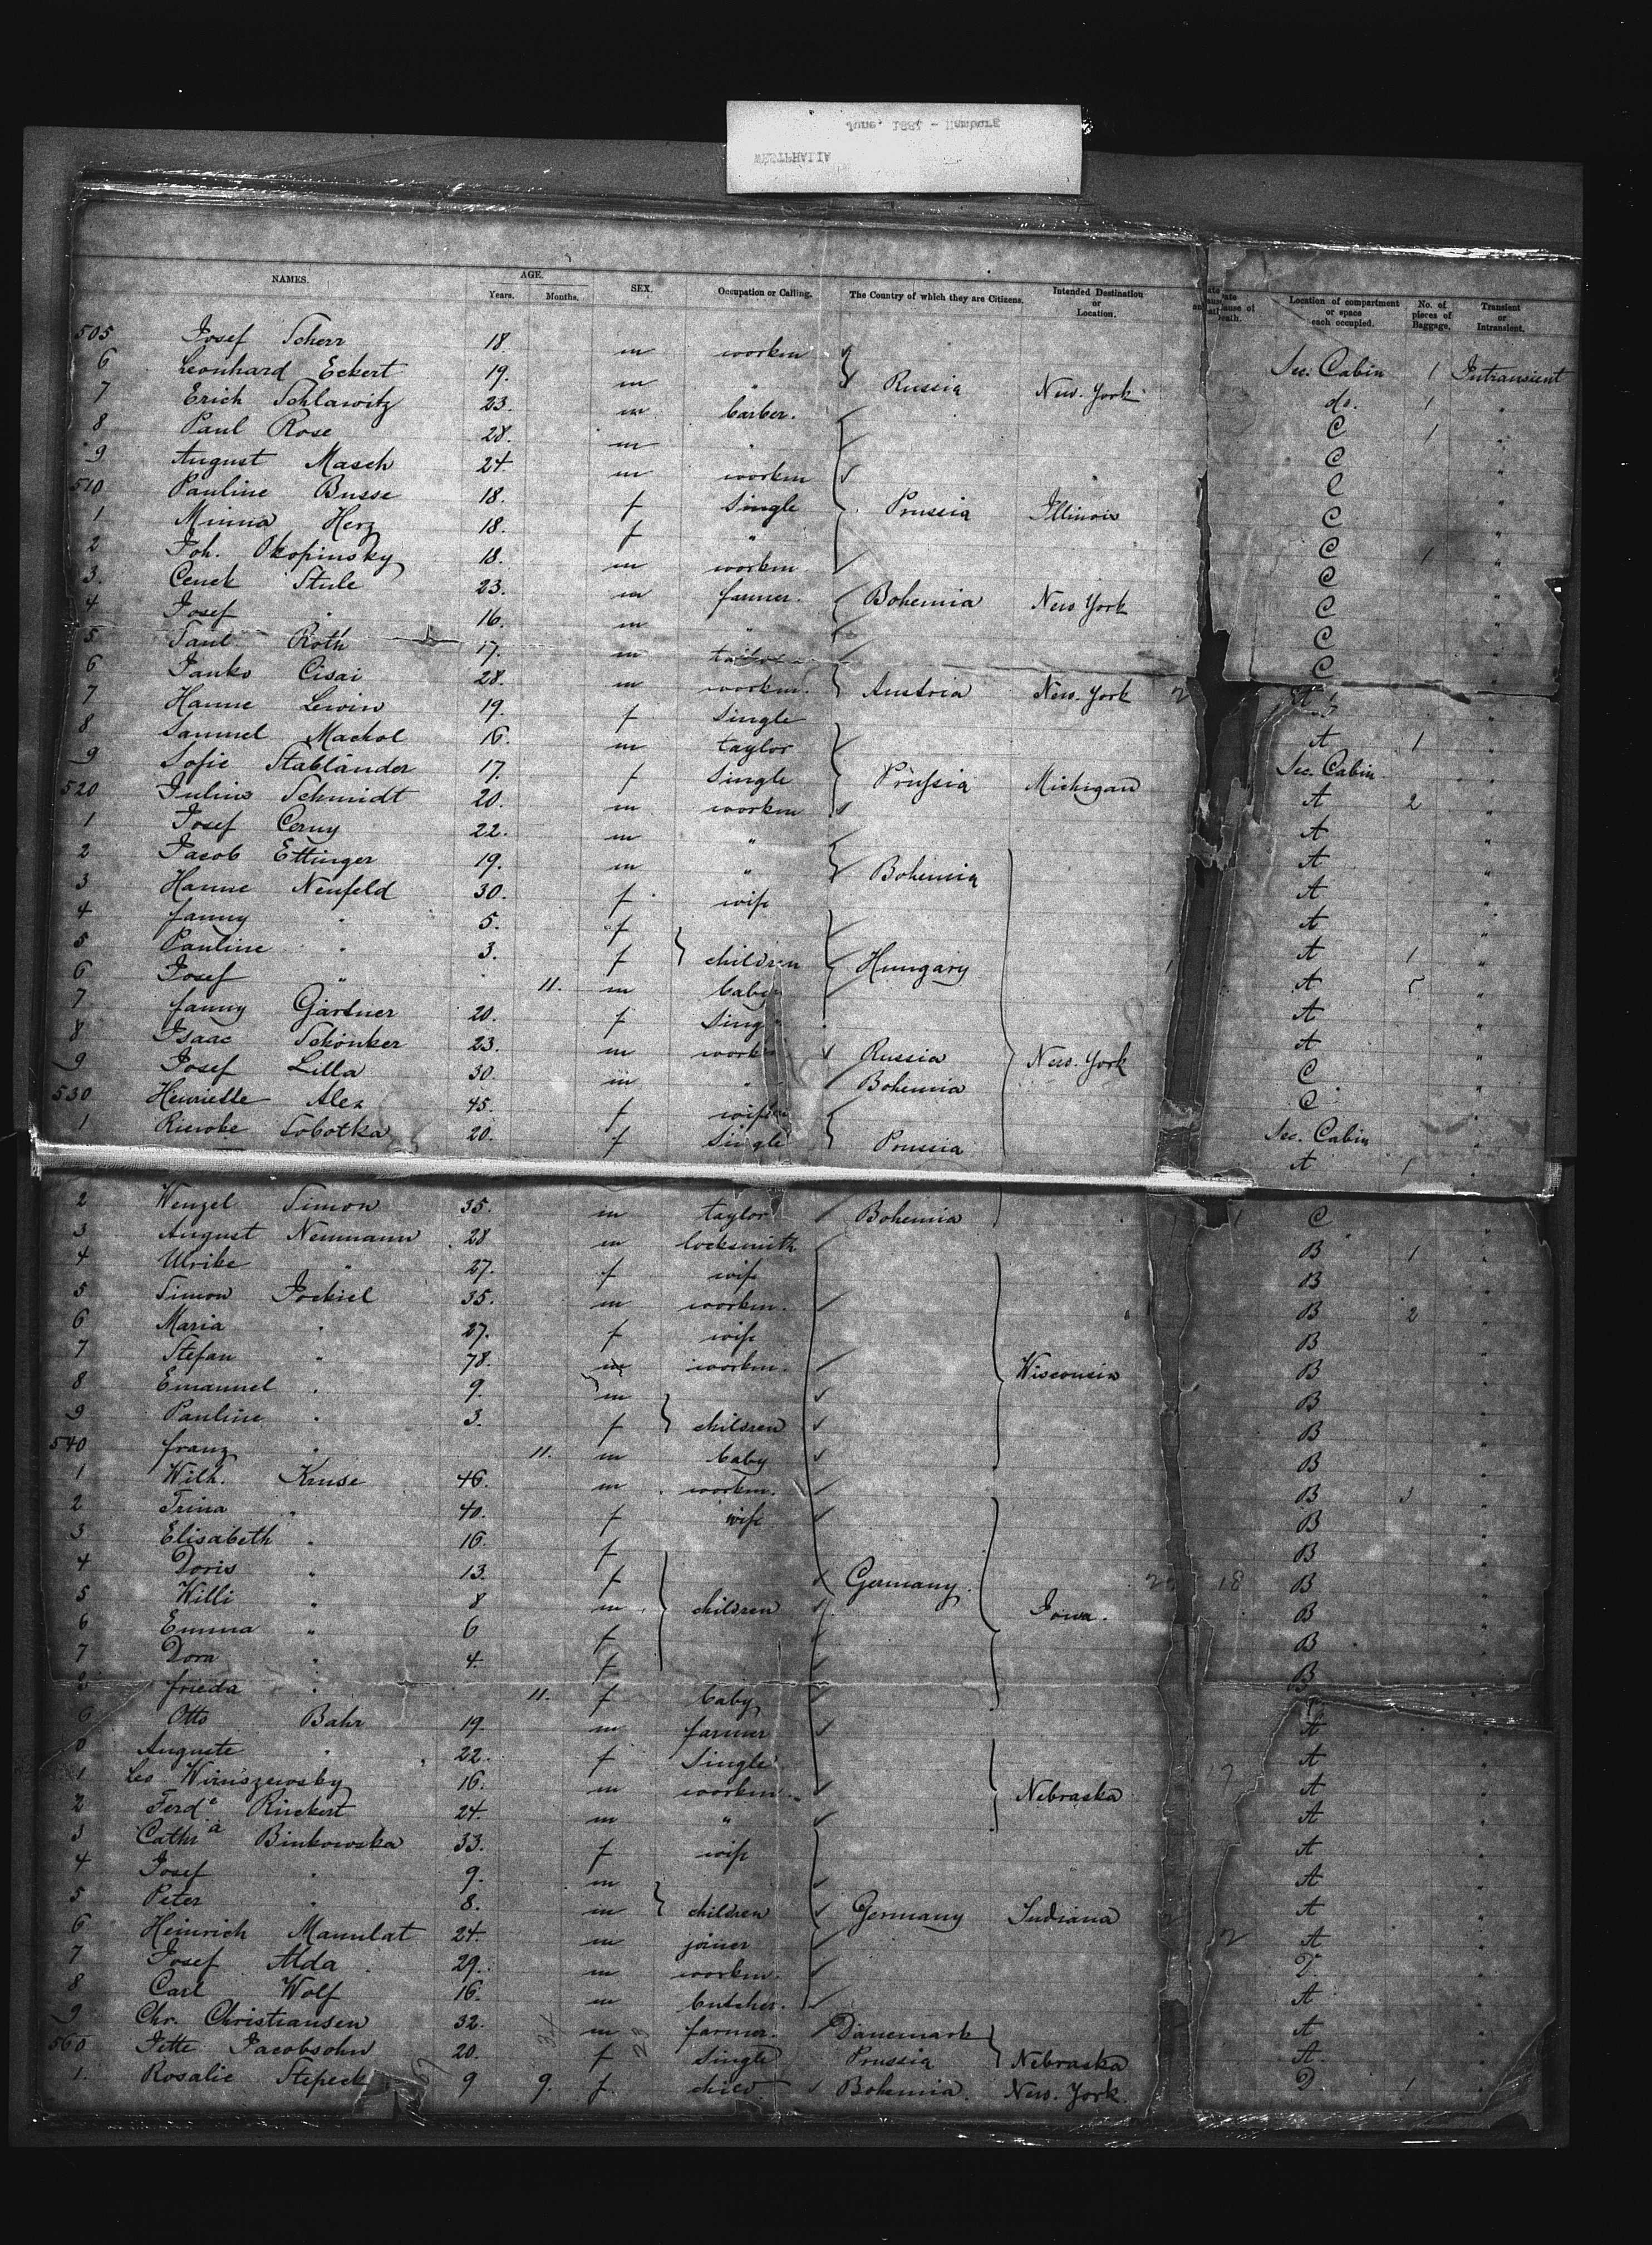 June, 1887 - Hamburg
WESTPHALIA
NAMES. AGE. Years. Months. SEX. Occupation or Calling. The Country of which they are Citizens. Intended Destination or Location. Location of compartment or space each occupied. No. of pieces of Baggage. Transient or Intransient.
505 Josef Scherr 18. m workm Sec. Cabin 1 Intransient
6 Leonhard Eckert 19. m " Russia New-York do. 1 "
7 Erich Schlawitz 23. m barber. C 1 "
8 Paul Rose 28. m " C "
9 August Masch 24 m workm C "
510 Pauline Busse 18. f Single Prussia Illinois C "
1 Minna Herz 18. f " C 1 "
2 Joh. Okopinsky 18. m workm C "
3. Cenek Stule 23. m farmer. Bohemia New York C "
4 Josef " 16. m " C "
5 Saul Roth 17. m tailor C "
6 Janko Cisai 28. m workm. Austria New-York A "
7 Hanne Lewin 19. f Single A 1 "
8 Samuel Machol 16. m taylor Sec. Cabin "
9 Sofie Stabländer 17. f Single Prussia Michigan A 2 "
520 Julius Schmidt 20. m workm A "
1 Josef Cerny 22. m " A "
2 Jacob Ettinger 19. m " Bohemia A "
3 Hanne Neufeld 30. f wife A "
4 fanny " 5. f A 1 "
5 Pauline " 3. f children Hungary A 5 "
6 Josef " 11. m baby A "
7 fanny Gärtner 20. f Single A "
8 Isaac Schönker 23. m workm Russia New-York C "
9 Josef Lilla 30. m " Bohemia C "
530 Henriette Alex 45. f wife Sec. Cabin "
1 Riewke Sobotka 20. f Single Prussia A 1 "
2 Wenzel Simon 35. m taylor Bohemia C "
3 August Neumann 28 m locksmith B 1 "
4 Ulrike " 27. f wife B "
5 Simon Jockiel 35. m workm. B 2 "
6 Maria " 27. f wife B "
7 Stefan " 78. m workm. Wisconsin B "
8 Emanuel " 9. m B "
9 Pauline " 3. f children B "
540 franz " 11. m baby B "
1 Wilh. Kruse 46. m workm. B 3 "
2 Trina " 40. f wife B "
3 Elisabeth " 16. f B "
4 Doris " 13. f Germany. B "
5 Willi " 8 m children Iowa. B "
6 Emma " 6 f B "
7 Dora " 4. f B "
frieda " 11. f baby "
Otto Bahr 19. m farmer A "
0 Auguste " 22. f Single A "
1 Leo 16. m workm. Nebraska A "
2 Ferd. Rückert 24. m " A "
3 Cathra Binkowska 33. f wife A "
4 Josef " 9. m A "
5 Peter " 8. m children Germany Indiana A "
6 Heinrich Mamulat 24. m joiner A "
7 Josef Alda 29. m workm. "
8 Carl Wolf 16. m butcher. A "
9 Chr. Christiansen 32. m farmer. Danemark A "
560 Jette Jacobsohn 20. f Single Prussia Nebraska A "
1. Rosalie Stepeck 9 9. f child. Bohemia. New-York. D 1 "